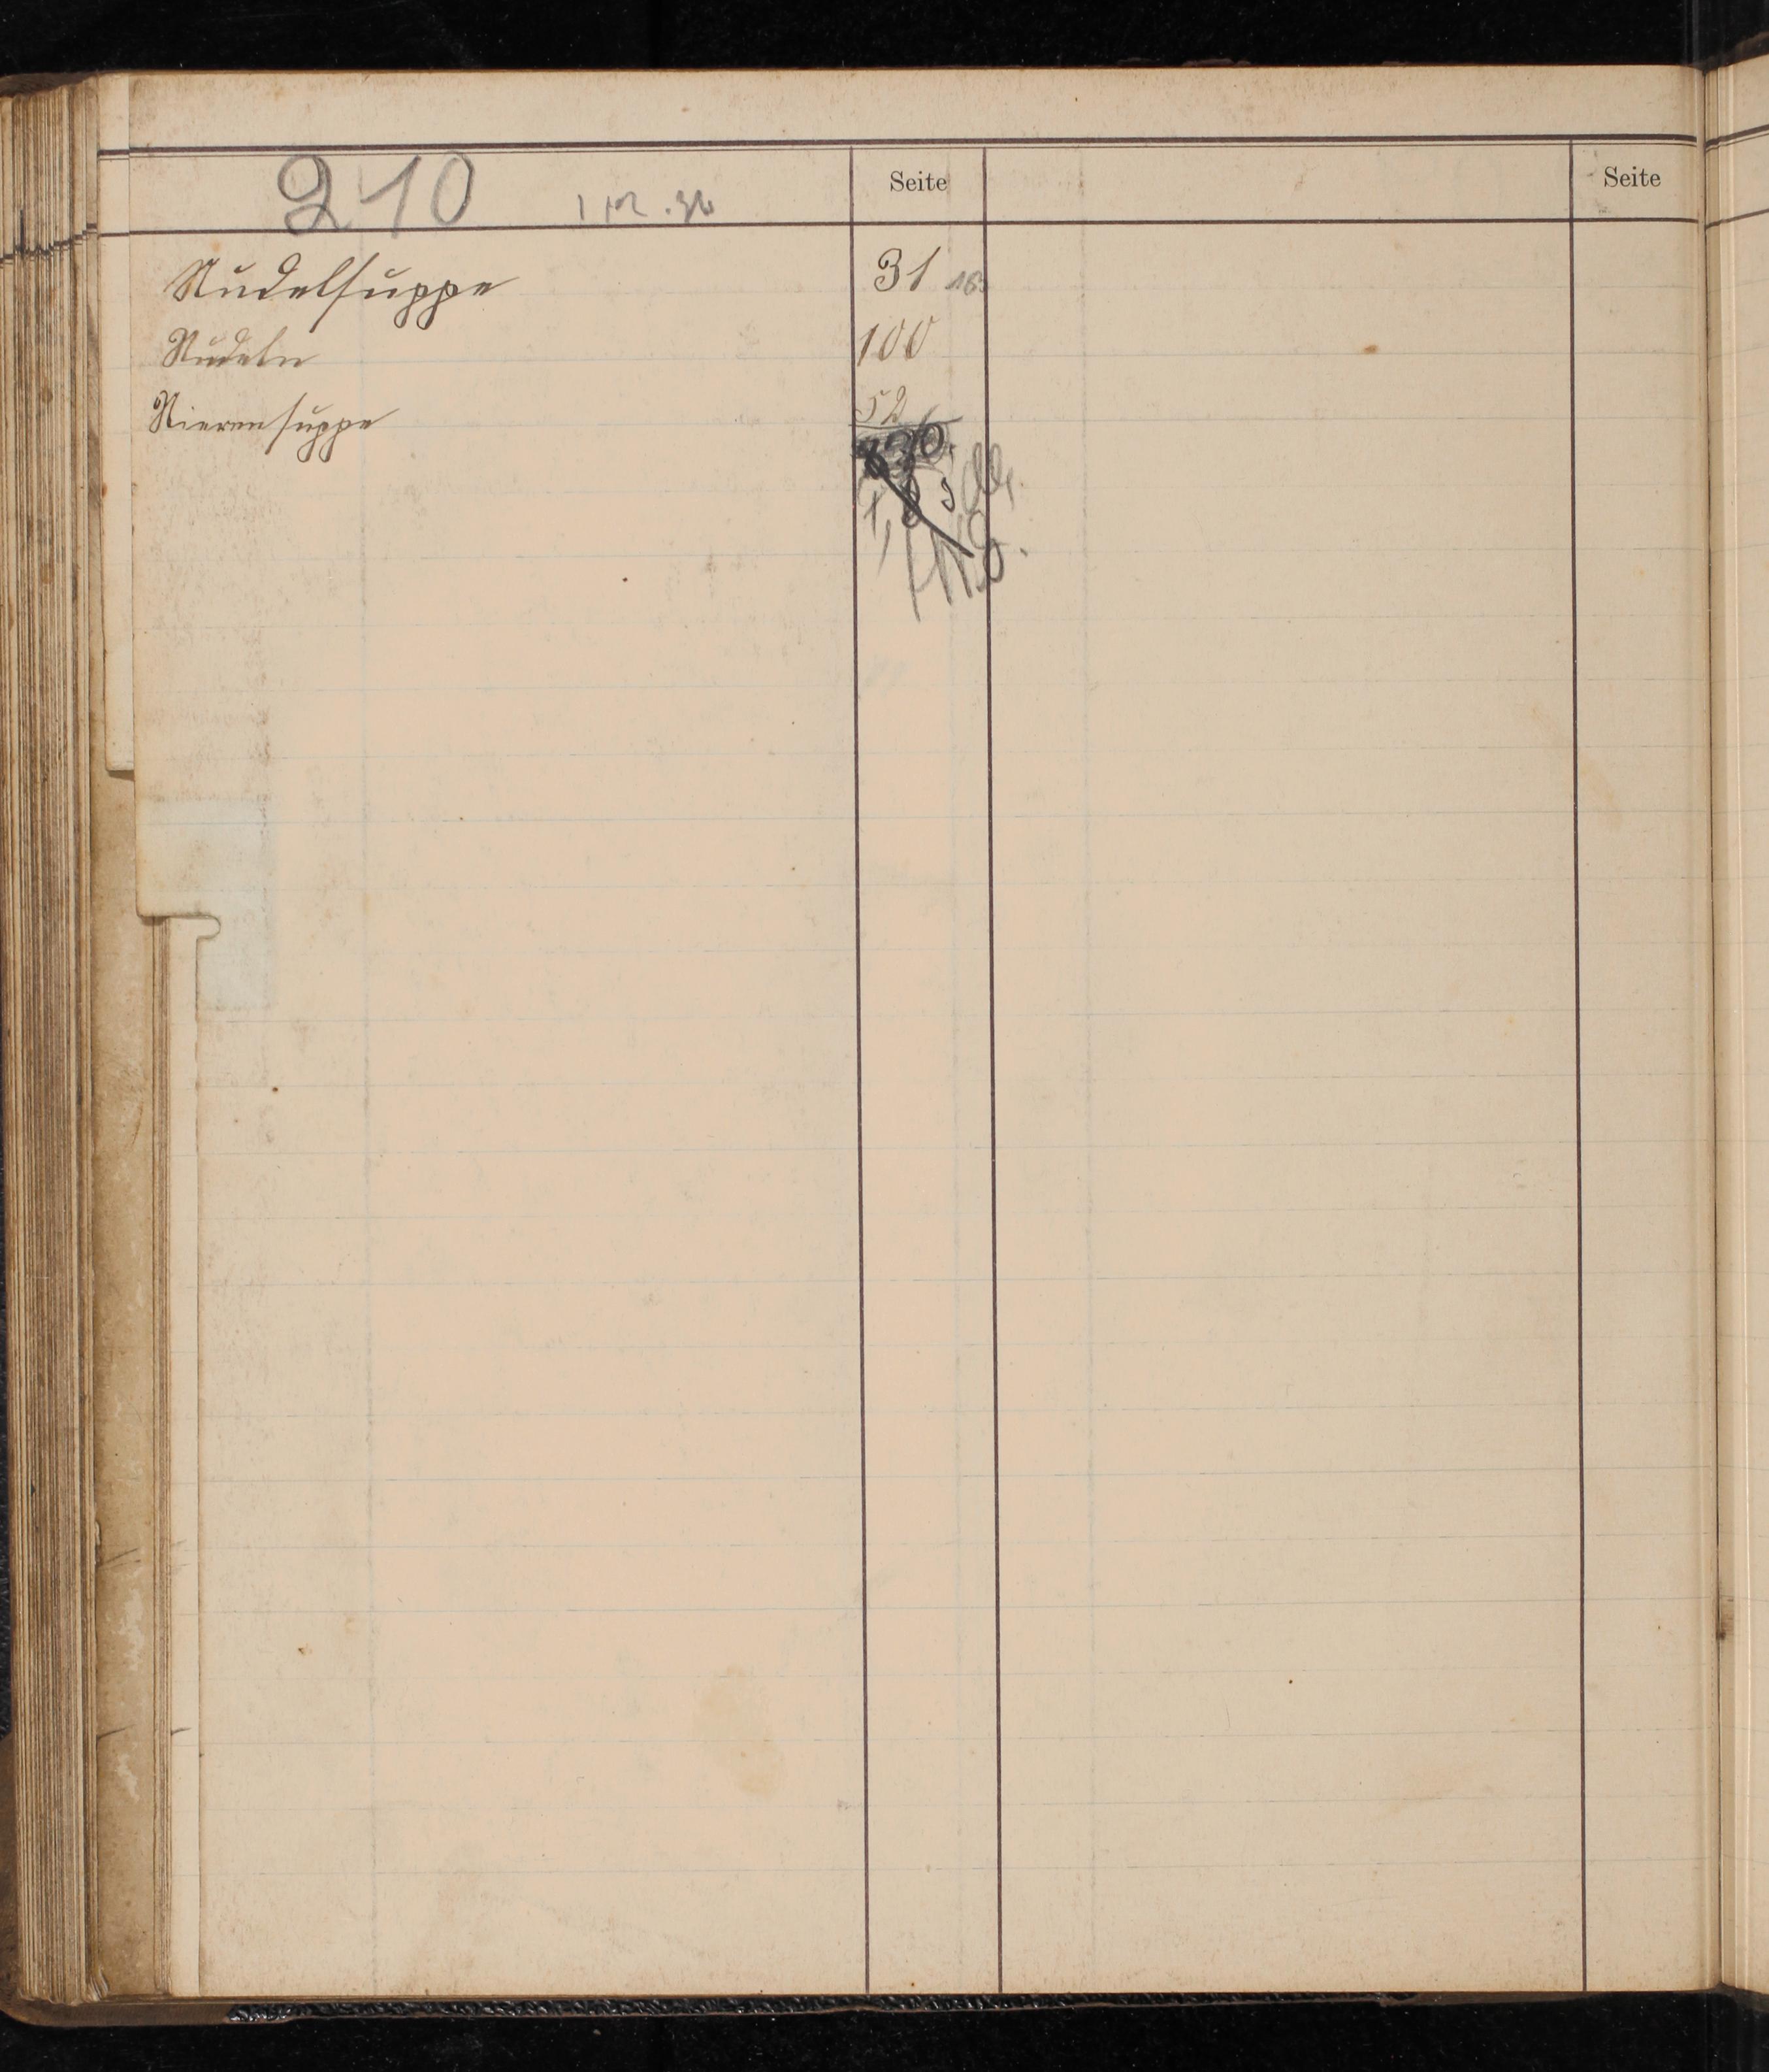 210 Seite Seite
Nudelsuppe 31 183
Nudeln 100
Nierensuppe 52
830.